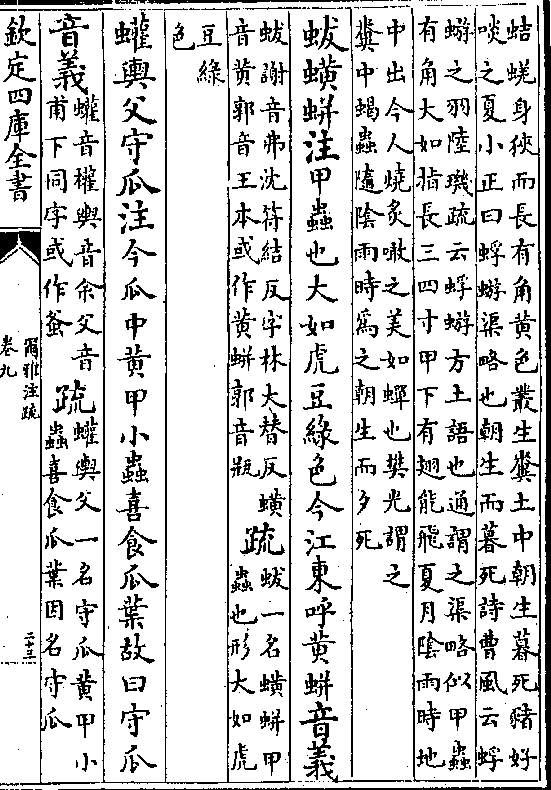 蛣蜣身狹而長有角黃色叢生糞土中朝生暮死豬好
啖之夏小正曰蜉蝣渠略也朝生而暮死詩曹風云蜉
蝣之羽陸璣疏云蜉蝣方土語也通謂之渠略似甲蟲
有角大如指長三四寸甲下有翅能飛夏月陰雨時地
中出今人燒炙噉之美如蟬也樊光謂之
糞中蝎蟲隨陰雨時為之朝生而夕死
蛂蟥蛢注甲蟲也大如虎豆綠色今江東呼黃蛢音義
蛂謝音弗沈符結反字林大替反蟥
音黃郭音王本或作黃蛢郭音瓶
疏蛂一名蟥蛢甲
蟲也形大如虎
豆綠
色
蠸輿父守瓜注今瓜中黃甲小蟲喜食瓜葉故曰守瓜
音義蠸音權輿音余父音
甫下同字或作蚥
疏蠸輿父一名守瓜黃甲小
蟲喜食瓜葉因名守瓜
欽定四庫全書
爾雅注疏
卷九
二十三